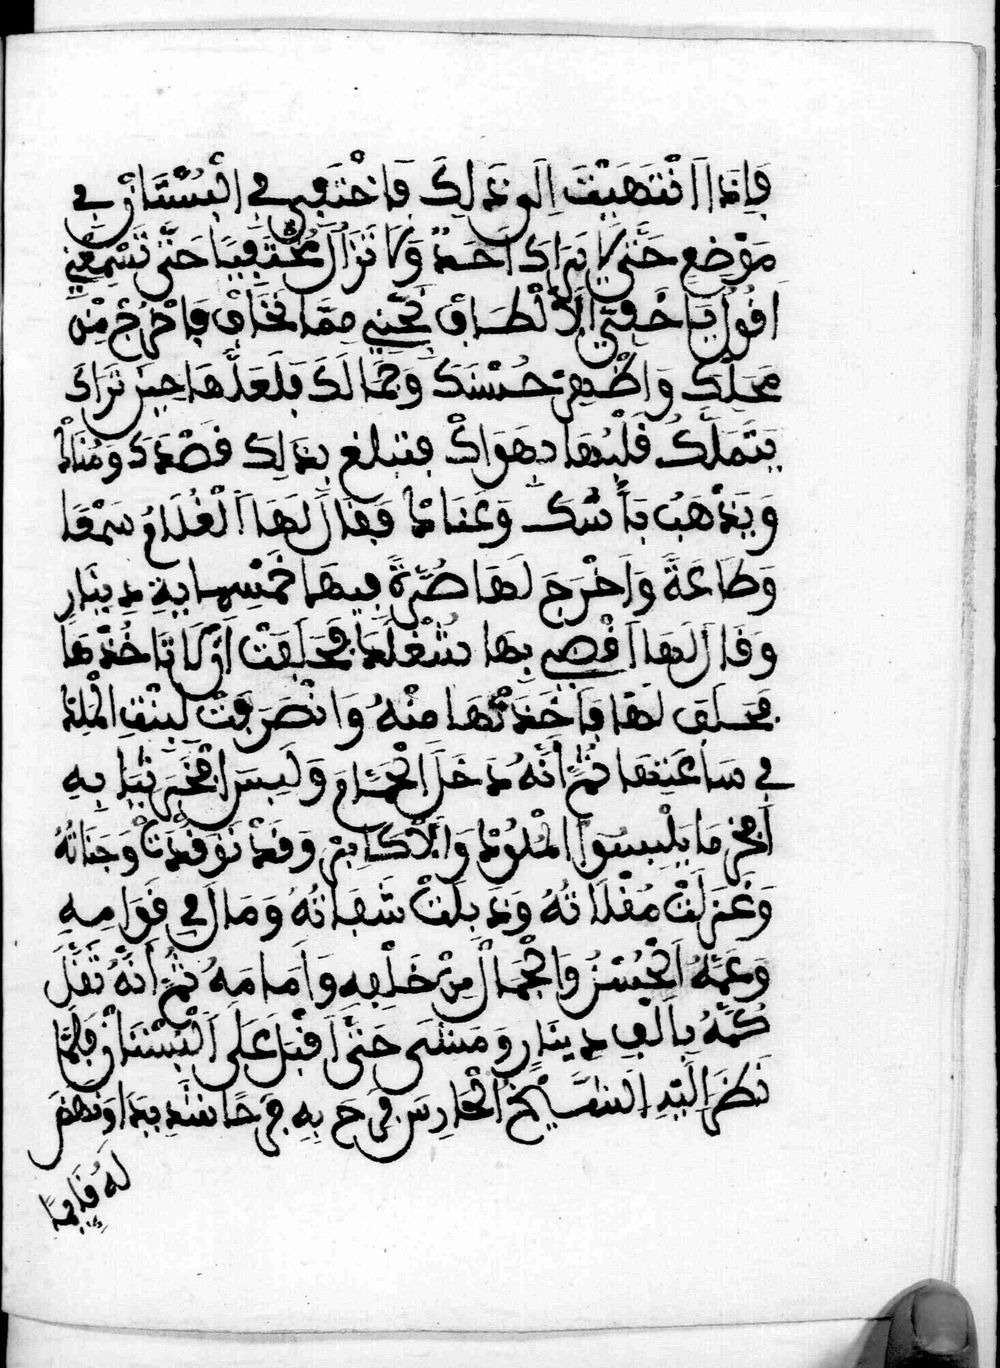 فَإذَا انْتَهَيْتَ إلى ذَلِكَ فَاخْتَفِي في البُسْتَانْ في
مَوْضِعٍ حَتَّى لا يَرَاكَ أحَدٌ وَلا تَزَالْ مُخْتَفِيَا حَتَّى تَسْمَعْنِي
اقُولْ يَا خَفِيَّ الألْطَافْ نَجِّنِي مِمَّا نَخَافْ فَاخْرُجْ مِنْ
مَحَلِّكَ وَاظْهِرْ حُسْنَكَ وَجَمَالَكَ فَلَعَلَّهَا حِينَ تَرَاكَ
يَتَمَلَّكُ قَلْبُهَا بِهَوَاكْ فتبلغ بِذَالِكَ قَصْدَكَ وَمُنَاكْ
وَيَذْهَبُ بَأْسُكَ وَعَنَاكْ فَقَالَ لَهَا الْغُلامُ سَمْعَا
وَطَاعَةً وَأَخْرَجَ لَهَا صُرَّةً فِيهَا خَمْسِمايَةِ دِينَارٍ
وَقَالَ لَهَا اقْضِي بِهَا شُغْلَكِ فَحَلَفَتْ أَنْ لا تَاخُذْهَا
فَحَلَفَ لَهَا فَأَخَذَتْهَا مِنْهُ وَانْصَرَفَتْ لِبِنْتِ الْمَلِكْ
في سَاعَتِهَا ثُمَّ أَنَّهُ دَخَلَ الْحَمَّامَ وَلَبِسَ افْخَرَ ثِيَابِهِ
أَفْخَر مَا يَلْبِسُوا الْمُلُوكْ وَالأكَابِرْ وَقَدْ تَوَقَّدَتْ وَجَنَاتُهُ
وَغَزَلَتْ مُقْلاتُهُ وَذَبِلَتْ شَفَاتُهُ وَمَالَ في قَوَامِهِ
وَعَمَّهُ الْحُسْنُ وَالْجَمَالْ مِنْ خَلْفِهِ وَأمَامَهُ ثُمَّ أنَّهُ ثَقَّلَ
كُمَّهُ بِألْفِ دِينَارٍ وَمَشَى حَتَّى أَقْبَلَ عَلَى الْبُسْتَانْ فَلَمَّا
نَظَرَ الَيْهِ الشَّيْخُ الْحَارِسَ فَرِحَ بِهِ فَرَحًا شَدِيدَا وَنَهَضَ
لَهُ قَايِمًا